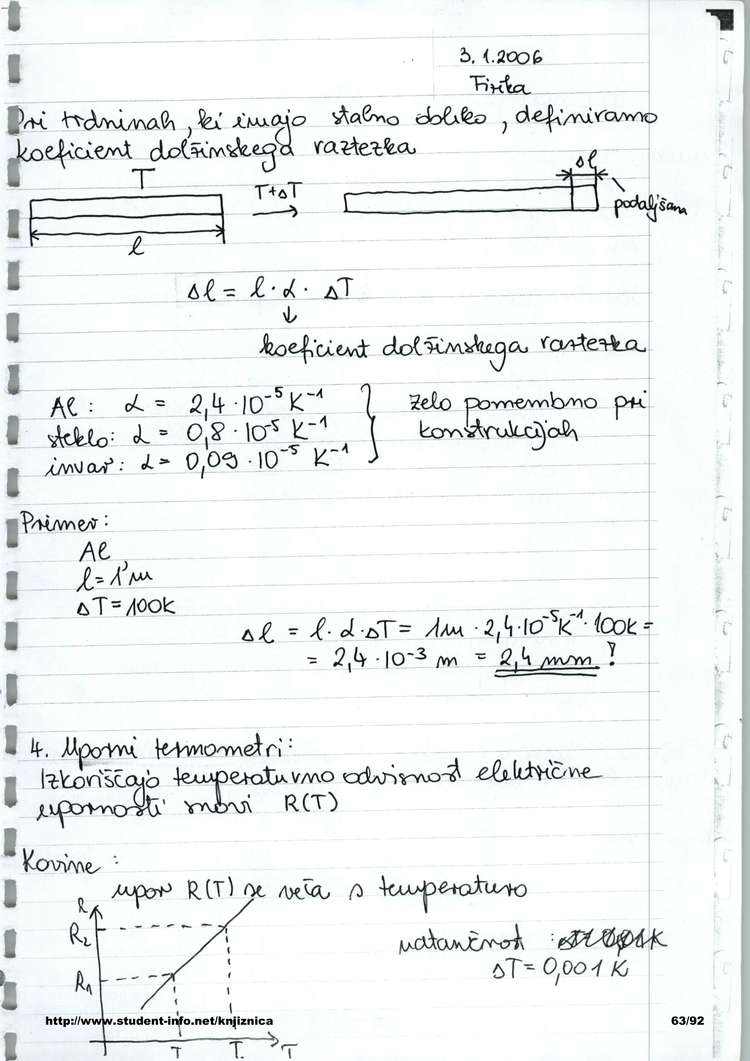 3. 1. 2006
Fizika
Pri trdninah, ki imajo stalno obliko, definiramo
koeficient dolžinskega raztezka
T
T+ΔT
Δl
podaljšam
l
Δl = l · α · ΔT
↓
koeficient dolžinskega raztezka
Al : α = 2,4 · 10⁻⁵ K⁻¹
steklo: α = 0,8 · 10⁻⁵ K⁻¹
invar: α = 0,09 · 10⁻⁵ K⁻¹
zelo pomembno pri
konstrukcijah
Primer:
Al
l = 1 m
ΔT = 100K
Δl = l · α · ΔT = 1m · 2,4 · 10⁻⁵ K⁻¹ · 100K =
= 2,4 · 10⁻³ m = 2,4 mm !
4. Uporni termometri:
Izkoriščajo temperaturno odvisnost električne
upornosti snovi R(T)
Kovine :
upor R(T) se veča s temperaturo
R
R₂
R₁
T
T
T
natančnost :
ΔT = 0,001 K
http://www.student-info.net/knjiznica
63/92